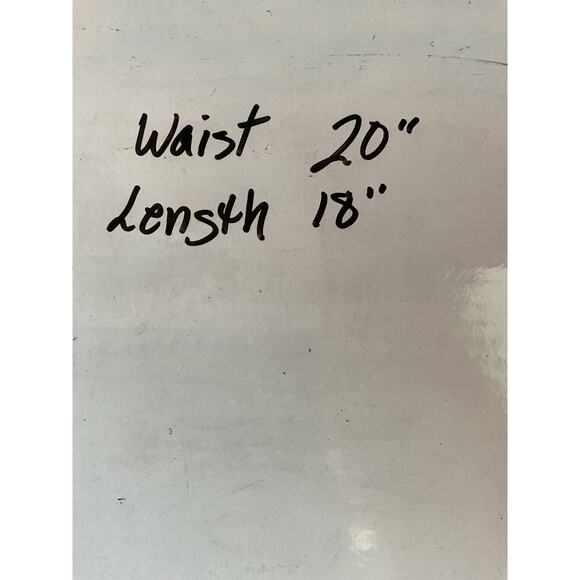 Waist 20"
Length 18"